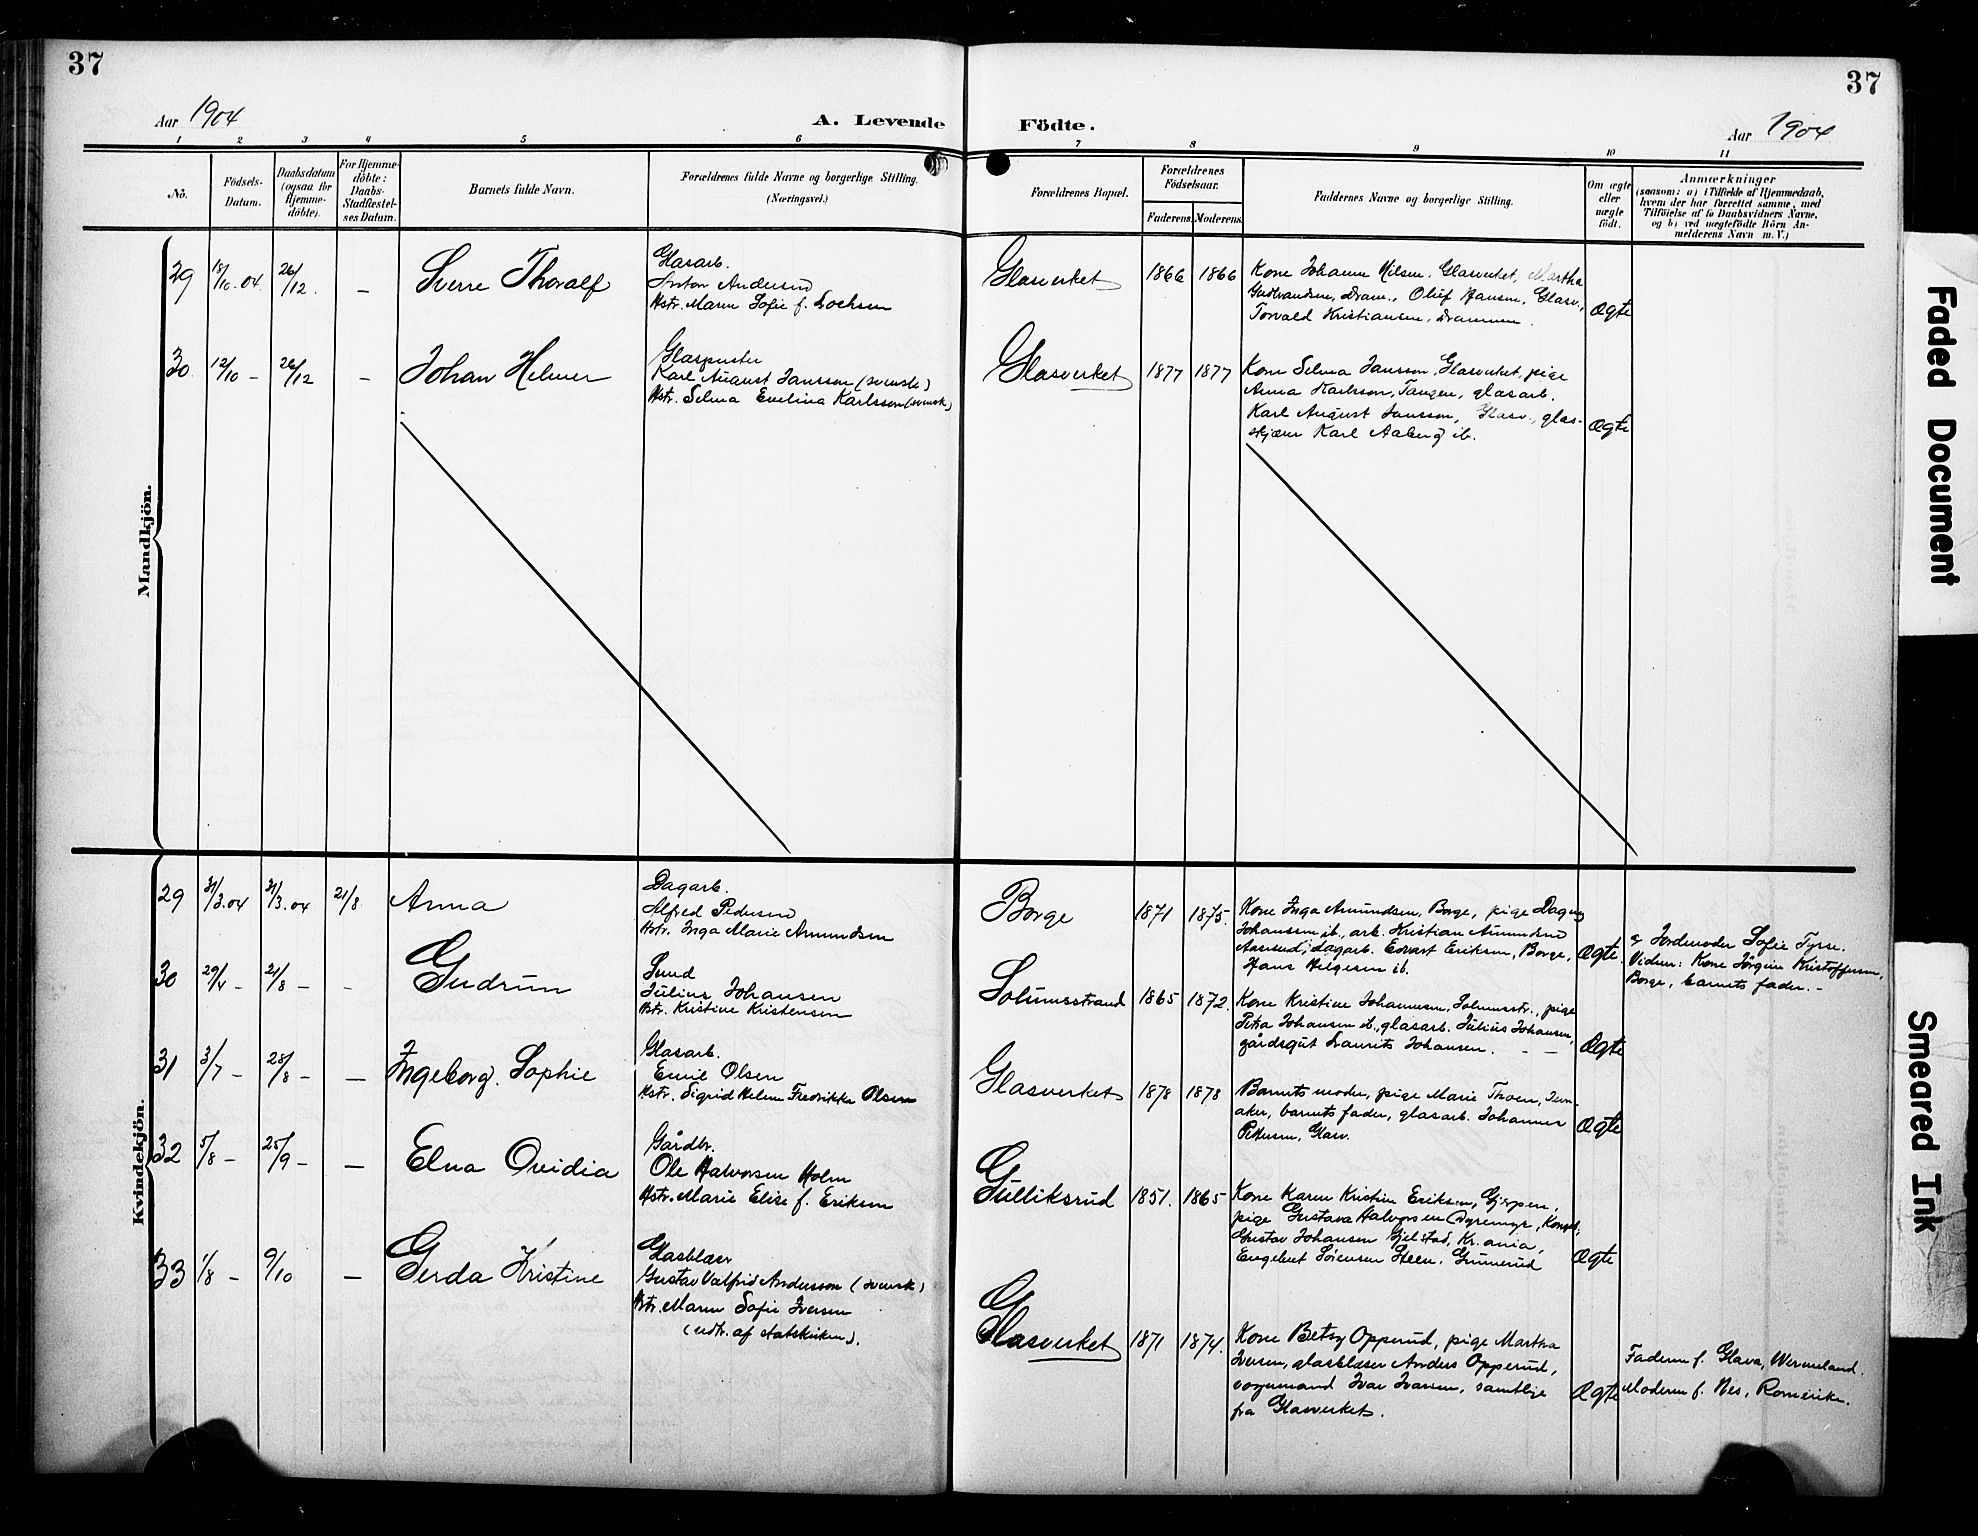 37
Aar 1904
A. Levende
1 2 3 4 5 6
No.
Födsels-
Datum.
Daabsdatum
(ogsaa for
Hjemme-
döbte).
For Hjemme-
döbte:
Daabs-
Stadfæstel-
ses Datum.
Barnets fulde Navn.
Forældrenes fulde Navne og borgerlige Stilling.
(Næringsvei.)
Mandkjön.
29 18/10.04. 26/12. – Sverre Thoralf
Glasarb.
Anton Andersen
Hstr. Maren Sofie f. Lochsen
30 12/10 – 26/12 – Johan Helmer
Glaspuster
Karl August Jansson (svensk)
Hstr. Selma Evelina Karlsson (svensk)
Kvindekjön.
29 31/3.04 31/3.04 21/8. Anna
Dagarb.
Alfred Pedersen
Hstr. Inga Marie Amundsen
30 29/4 – 21/8 – – Gudrun
Smed
Julius Johansen
Hstr. Kristine Kristensen
31 3/7 – 28/8 – – Ingeborg Sophie
Glasarb.
Emil Olsen
Hstr. Sigrid Helene Fredrikke Olsen
32 5/8 – 25/9 – – Elna Ovidia
Gårdbr.
Ole Halvorsen Holm
Hstr. Marie Elise f. Eriksen
33 1/8 – 9/10 – Gerda Kristine
Glasblæser
Gustav Valfrid Andersson (svensk)
Hstr. Maren Sofie Iversen
(udtr. af statskirken).
37
Födte.
Aar 1904
7 8 9 10 11
Forældrenes Bopæl.
Forældrenes
Födselsaar.
Faderens. Moderens.
Faddernes Navne og borgerlige Stilling.
Om ægte
eller
uægte
födt.
Anmærkninger
(saasom: a) i Tilfælde af Hjemmedaab,
hvem der har forrettet samme, med
Tilföielse af to Daabsvidners Navne,
og b) ved uægtefödte Börn An-
melderens Navn m. V.)
Glasverket 1866 1866
Kone Johanne Nilsen, Glasverket, Martha
Gudbrandsen, Dram., Oluf Hansen, Glasv.,
Torvald Kristiansen, Drammen.
Ægte
Glasverket 1877 1877
Kone Selma Jansson, Glasverket, pige
Anna Karlsson, Tangen, glasarb.
Karl August Jansson, Glasv., glas-
skjærer Karl Aaberg ib.
Ægte
Borge 1871 1875.
Kone Inga Amundsen, Borge, pige Dagny
Johansen ib., arb. Kristian Amundsen
Aaserud, dagarb. Edvart Eriksen, Borge,
Hans Helgesen ib.
Ægte.
Jordmoder Sofie Tysse.
Vidner: Kone Jörgine Kristoffersen,
Borge, barnets fader. –
Solumsstrand 1865 1872.
Kone Kristine Johannesen, Solumsstr., pige
Petra Johansen ib., glasarb. Julius Johansen,
gårdsgut Laurits Johansen. – –
Ægte
Glasverket 1878 1878
Barnets moder, pige Marie Thoen,
barnets fader, glasarb. Johannes
Pettersen, Glasv.
Ægte
Gulliksrud 1851. 1865
Kone Karen Kristine Eriksen, Gjerpen,
pige Gustava Halvorsen Dyremyr, Kongsb.,
Gustav Johansen Gjelstad, Kr.ania,
Engebret Sörensen Steen, Gunnerud
Ægte
Glasverket 1871 1874.
Kone Betsy Opperud, pige Martha
Iversen, glasblæser Anders Opperud,
vognmand Ivar Iversen, samtlige
fra Glasverket.
Ægte
Faderen f. Glava, Wermeland.
Moderen f. Nes, Romerike.
Faded Document
Smeared Ink